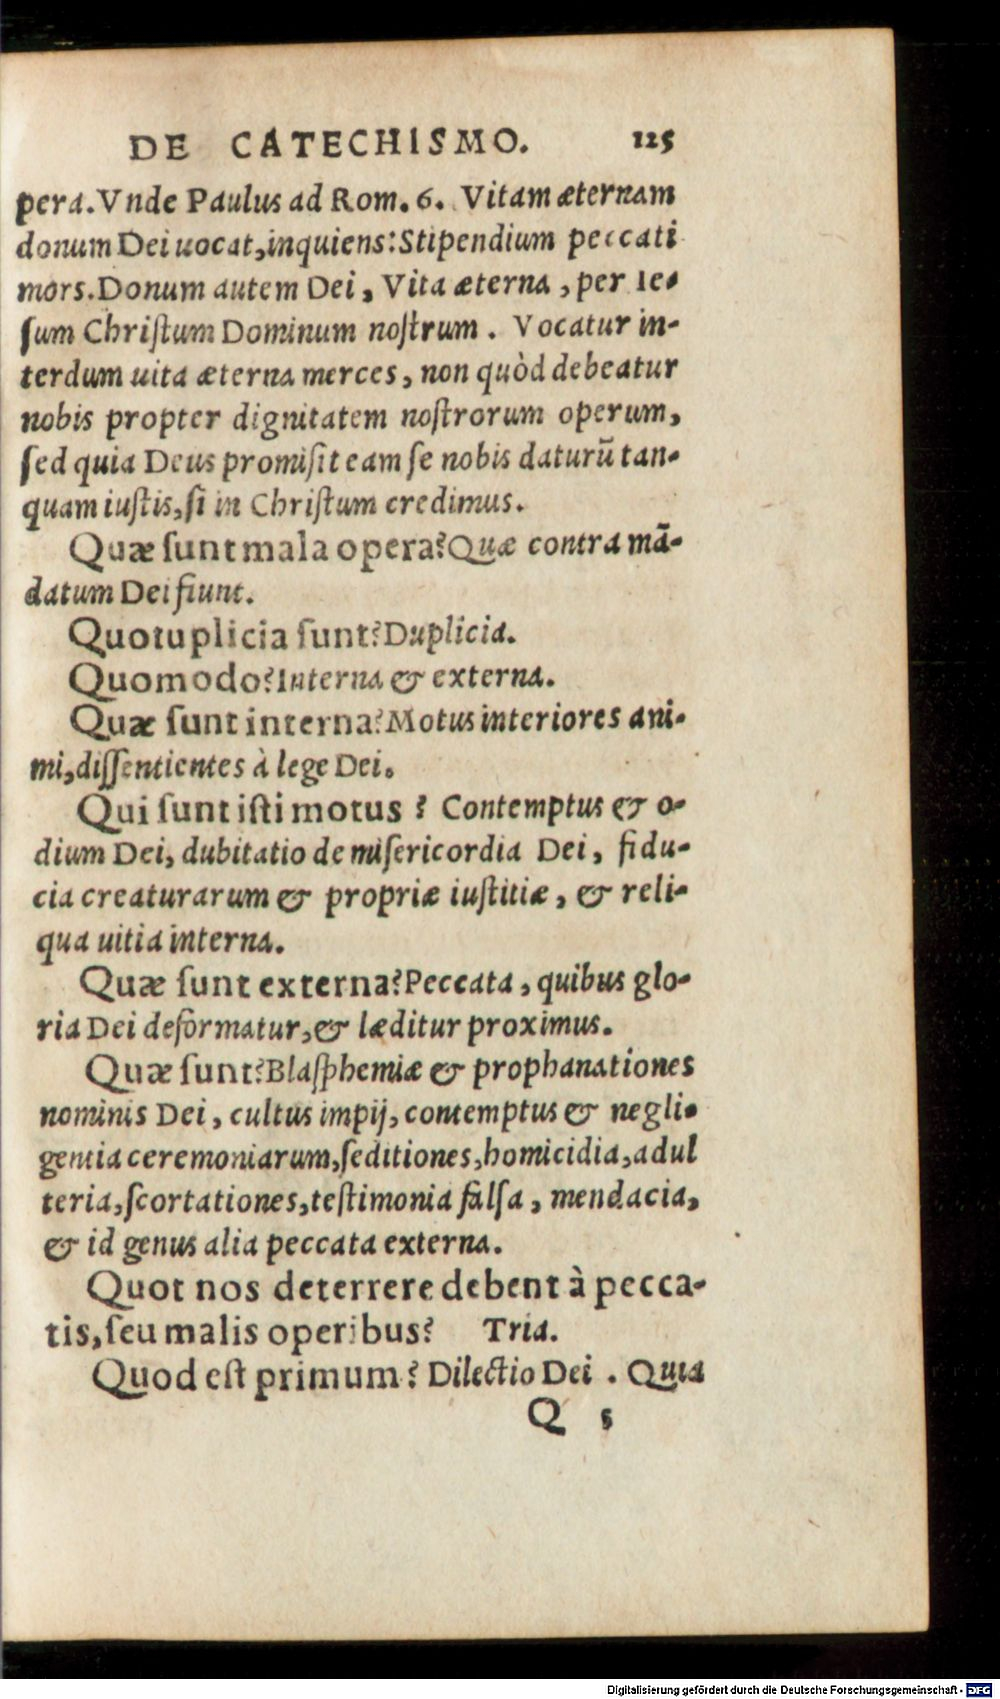 DE CATECHISMO. 125
pera. Vnde Paulus ad Rom. 6. Vitam æternam
donum Dei uocat, inquiens: Stipendium peccati
mors. Donum autem Dei, Vita æterna, per Ie-
ſum Chriſtum Dominum noſtrum. Vocatur in-
terdum uita æterna merces, non quòd debeatur
nobis propter dignitatem noſtrorum operum,
ſed quia Deus promiſit eam ſe nobis daturũ tan-
quam iuſtis, ſi in Chriſtum credimus.
Quæ ſunt mala opera? Quæ contra mã-
datum Dei fiunt.
Quotuplicia ſunt? Duplicia.
Quomodo? Interna & externa.
Quæ ſunt interna? Motus interiores ani-
mi, diſſentientes à lege Dei.
Qui ſunt iſti motus? Contemptus & o-
dium Dei, dubitatio de miſericordia Dei, fidu-
cia creaturarum & propriæ iuſtitiæ, & reli-
qua uitia interna.
Quæ ſunt externa? Peccata, quibus glo-
ria Dei deformatur, & læditur proximus.
Quæ ſunt? Blaſphemiæ & prophanationes
nominis Dei, cultus impij, contemptus & negli-
gentia ceremoniarum, ſeditiones, homicidia, adul
teria, ſcortationes, teſtimonia falſa, mendacia,
& id genus alia peccata externa.
Quot nos deterrere debent à pecca-
tis, ſeu malis operibus? Tria.
Quod eſt primum? Dilectio Dei. Quia
Q 5
Digitalisierung gefördert durch die Deutsche Forschungsgemeinschaft - DFG